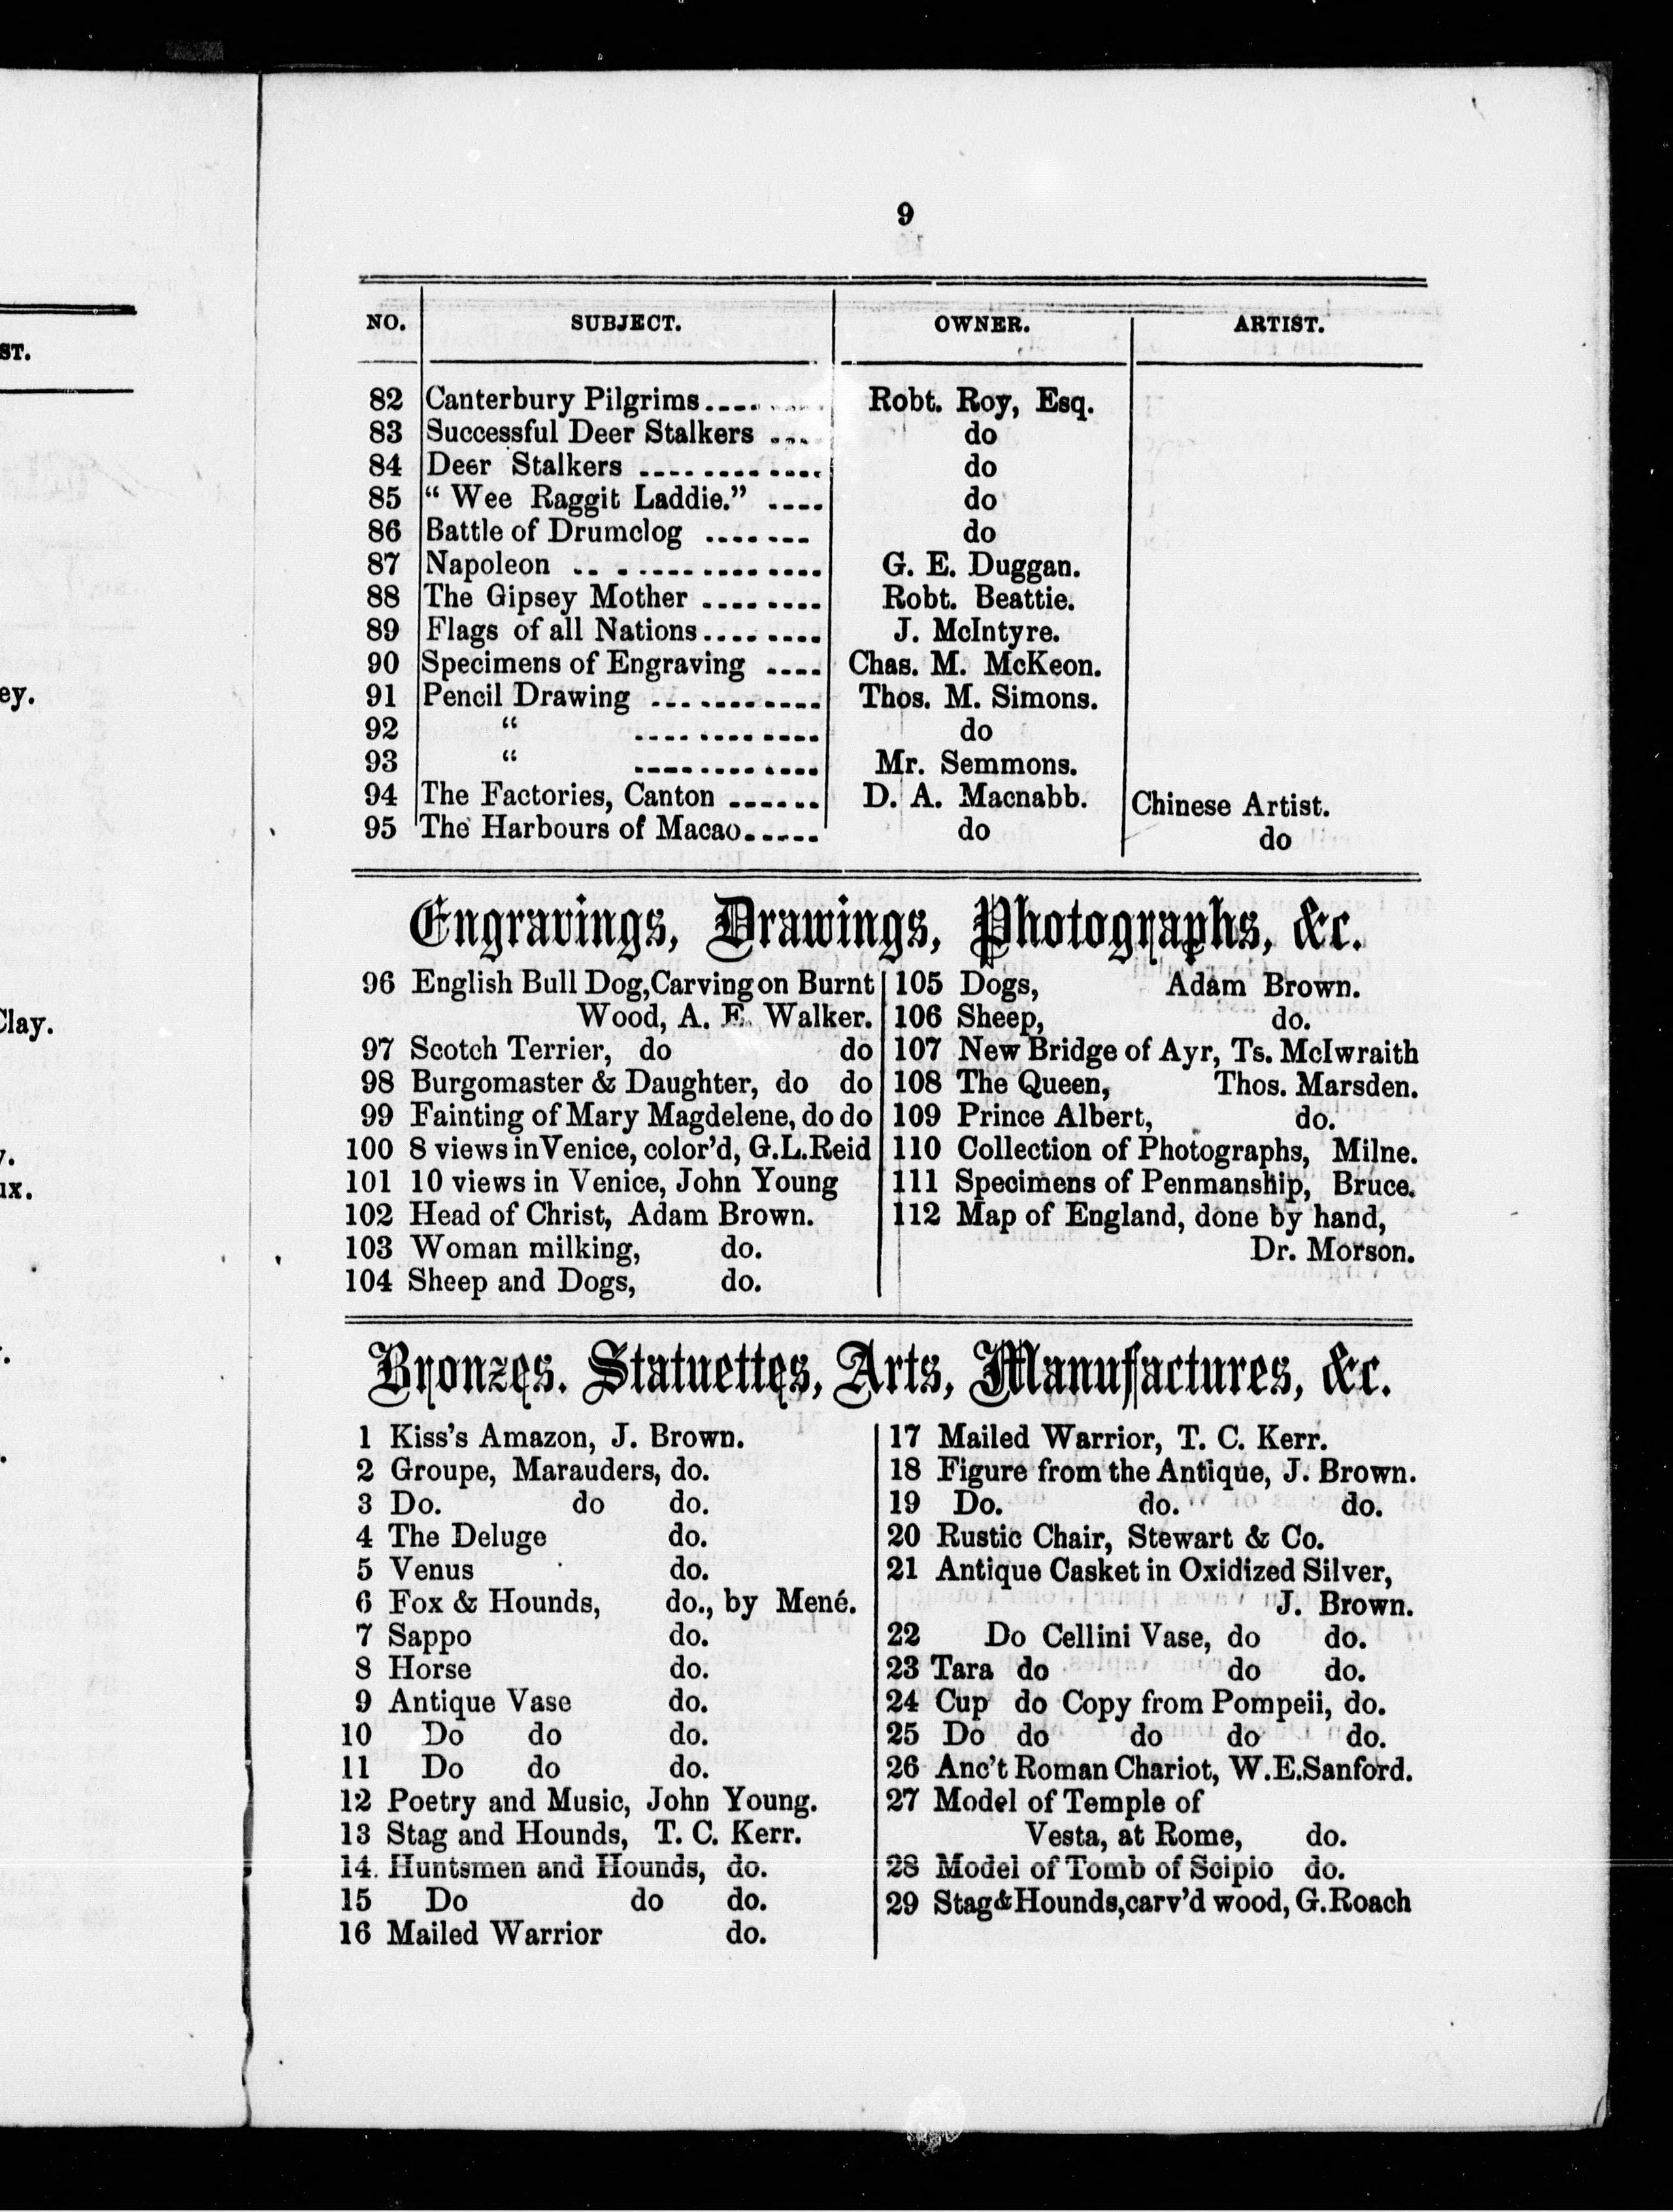 9
NO. SUBJECT. OWNER. ARTIST.
82 Canterbury Pilgrims........... Robt. Roy, Esq.
83 Successful Deer Stalkers .... do
84 Deer Stalkers ............ do
85 “ Wee Raggit Laddie.” .... do
86 Battle of Drumclog ....... do
87 Napoleon .. ............. G. E. Duggan.
88 The Gipsey Mother ........ Robt. Beattie.
89 Flags of all Nations........ J. McIntyre.
90 Specimens of Engraving .... Chas. M. McKeon.
91 Pencil Drawing ........... Thos. M. Simons.
92 “ ............ do
93 “ ............ Mr. Semmons.
94 The Factories, Canton ...... D. A. Macnabb. Chinese Artist.
95 The Harbours of Macao..... do do
Engravings, Drawings, Photographs, &c.
96 English Bull Dog,Carving on Burnt
Wood, A. E. Walker.
97 Scotch Terrier, do do
98 Burgomaster & Daughter, do do
99 Fainting of Mary Magdelene, do do
100 8 views in Venice, color’d, G.L.Reid
101 10 views in Venice, John Young
102 Head of Christ, Adam Brown.
103 Woman milking, do.
104 Sheep and Dogs, do.
105 Dogs, Adam Brown.
106 Sheep, do.
107 New Bridge of Ayr, Ts. McIwraith
108 The Queen, Thos. Marsden.
109 Prince Albert, do.
110 Collection of Photographs, Milne.
111 Specimens of Penmanship, Bruce.
112 Map of England, done by hand,
Dr. Morson.
Bronzes. Statuettes, Arts, Manufactures, &c.
1 Kiss’s Amazon, J. Brown.
2 Groupe, Marauders, do.
3 Do. do do.
4 The Deluge do.
5 Venus do.
6 Fox & Hounds, do., by Mené.
7 Sappo do.
8 Horse do.
9 Antique Vase do.
10 Do do do.
11 Do do do.
12 Poetry and Music, John Young.
13 Stag and Hounds, T. C. Kerr.
14. Huntsmen and Hounds, do.
15 Do do do.
16 Mailed Warrior do.
17 Mailed Warrior, T. C. Kerr.
18 Figure from the Antique, J. Brown.
19 Do. do. do.
20 Rustic Chair, Stewart & Co.
21 Antique Casket in Oxidized Silver,
J. Brown.
22 Do Cellini Vase, do do.
23 Tara do do do.
24 Cup do Copy from Pompeii, do.
25 Do do do do do.
26 Anc’t Roman Chariot, W.E.Sanford.
27 Model of Temple of
Vesta, at Rome, do.
28 Model of Tomb of Scipio do.
29 Stag&Hounds,carv’d wood, G.Roach
ST.
ey.
Clay.